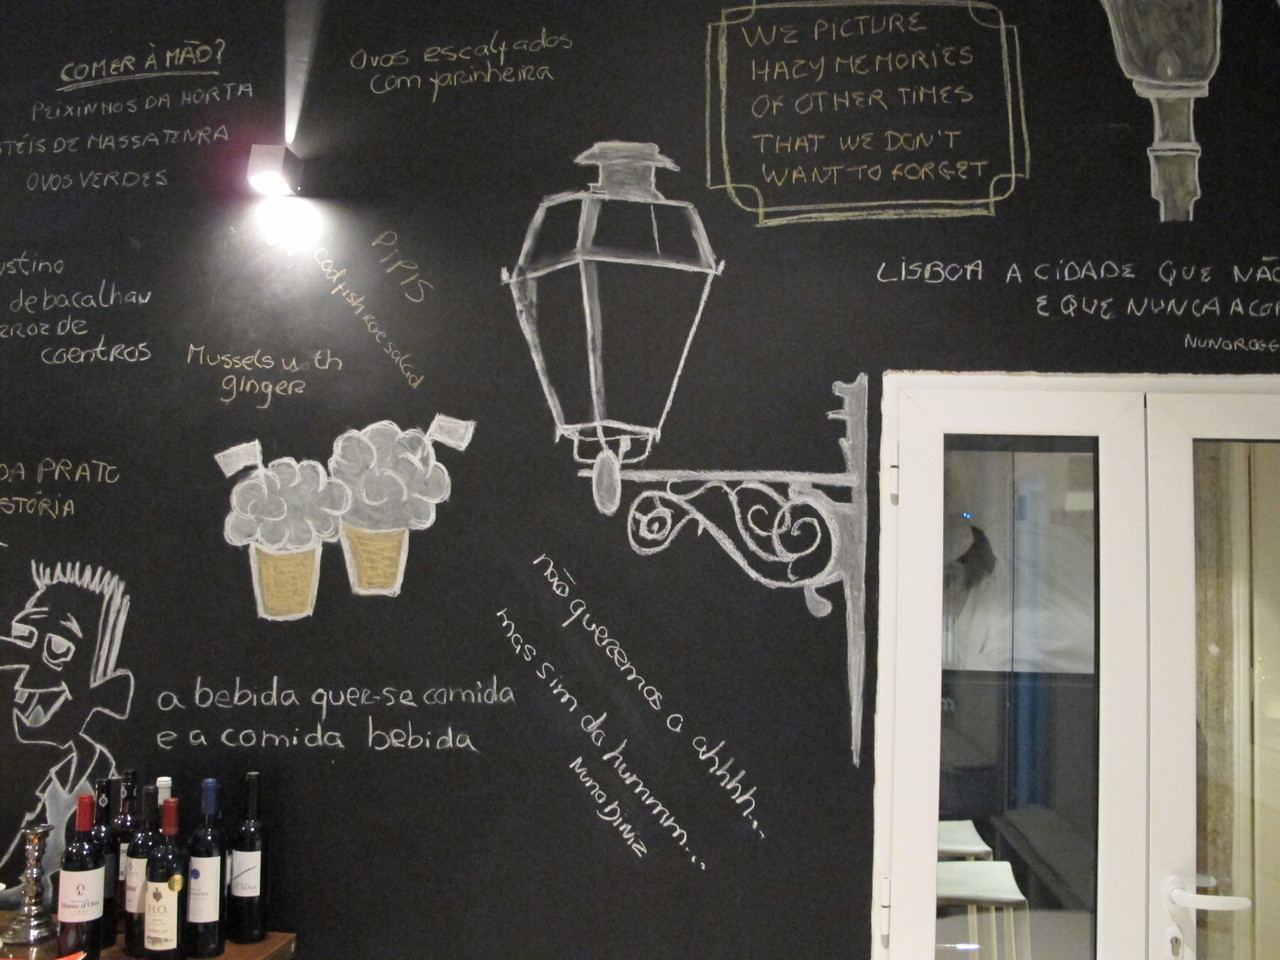 COMER À MÃO?
PEIXINHOS DA HORTA
STÉIS DE MASSA TENRA
OVOS VERDES
Ovos escalfados
com farinheira
WE PICTURE
HAZY MEMORIES
OF OTHER TIMES
THAT WE DON'T
WANT TO FORGET
LISBOA A CIDADE QUE NÃO
E QUE NUNCA ACOR
NUNO ROGE
ustino
de bacalhau
rroz de
coentros
PiPiS
Codfish roe salad
Mussels with
ginger
DA PRATO
STÓRIA
não queremos o ahhhh...
mas sim do hummm...
Nuno Diniz
a bebida quer-se comida
e a comida bebida
Monte d'Oiro
H.O.